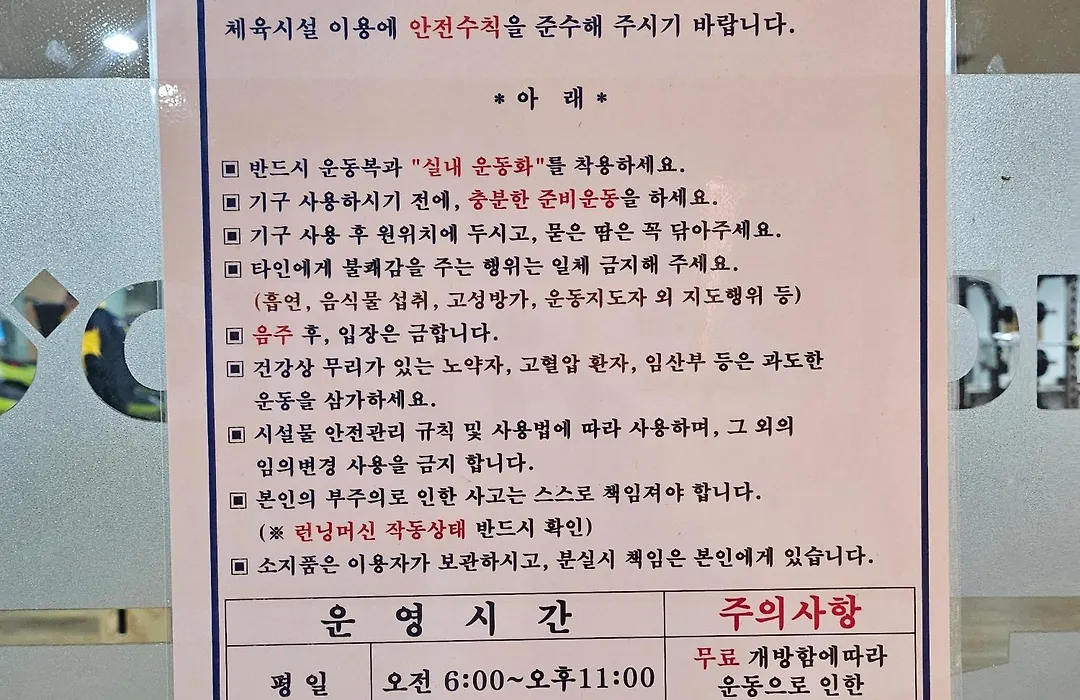 체육시설 이용에 안전수칙을 준수해 주시기 바랍니다.
* 아 래 *
▣ 반드시 운동복과 "실내 운동화"를 착용하세요.
▣ 기구 사용하시기 전에, 충분한 준비운동을 하세요.
▣ 기구 사용 후 원위치에 두시고, 묻은 땀은 꼭 닦아주세요.
▣ 타인에게 불쾌감을 주는 행위는 일체 금지해 주세요.
(흡연, 음식물 섭취, 고성방가, 운동지도자 외 지도행위 등)
▣ 음주 후, 입장은 금합니다.
▣ 건강상 무리가 있는 노약자, 고혈압 환자, 임산부 등은 과도한
운동을 삼가하세요.
▣ 시설물 안전관리 규칙 및 사용법에 따라 사용하며, 그 외의
임의변경 사용을 금지 합니다.
▣ 본인의 부주의로 인한 사고는 스스로 책임져야 합니다.
(※ 런닝머신 작동상태 반드시 확인)
▣ 소지품은 이용자가 보관하시고, 분실시 책임은 본인에게 있습니다.
운 영 시 간
주의사항
평 일
오전 6:00~오후11:00
무료 개방함에따라
운동으로 인한